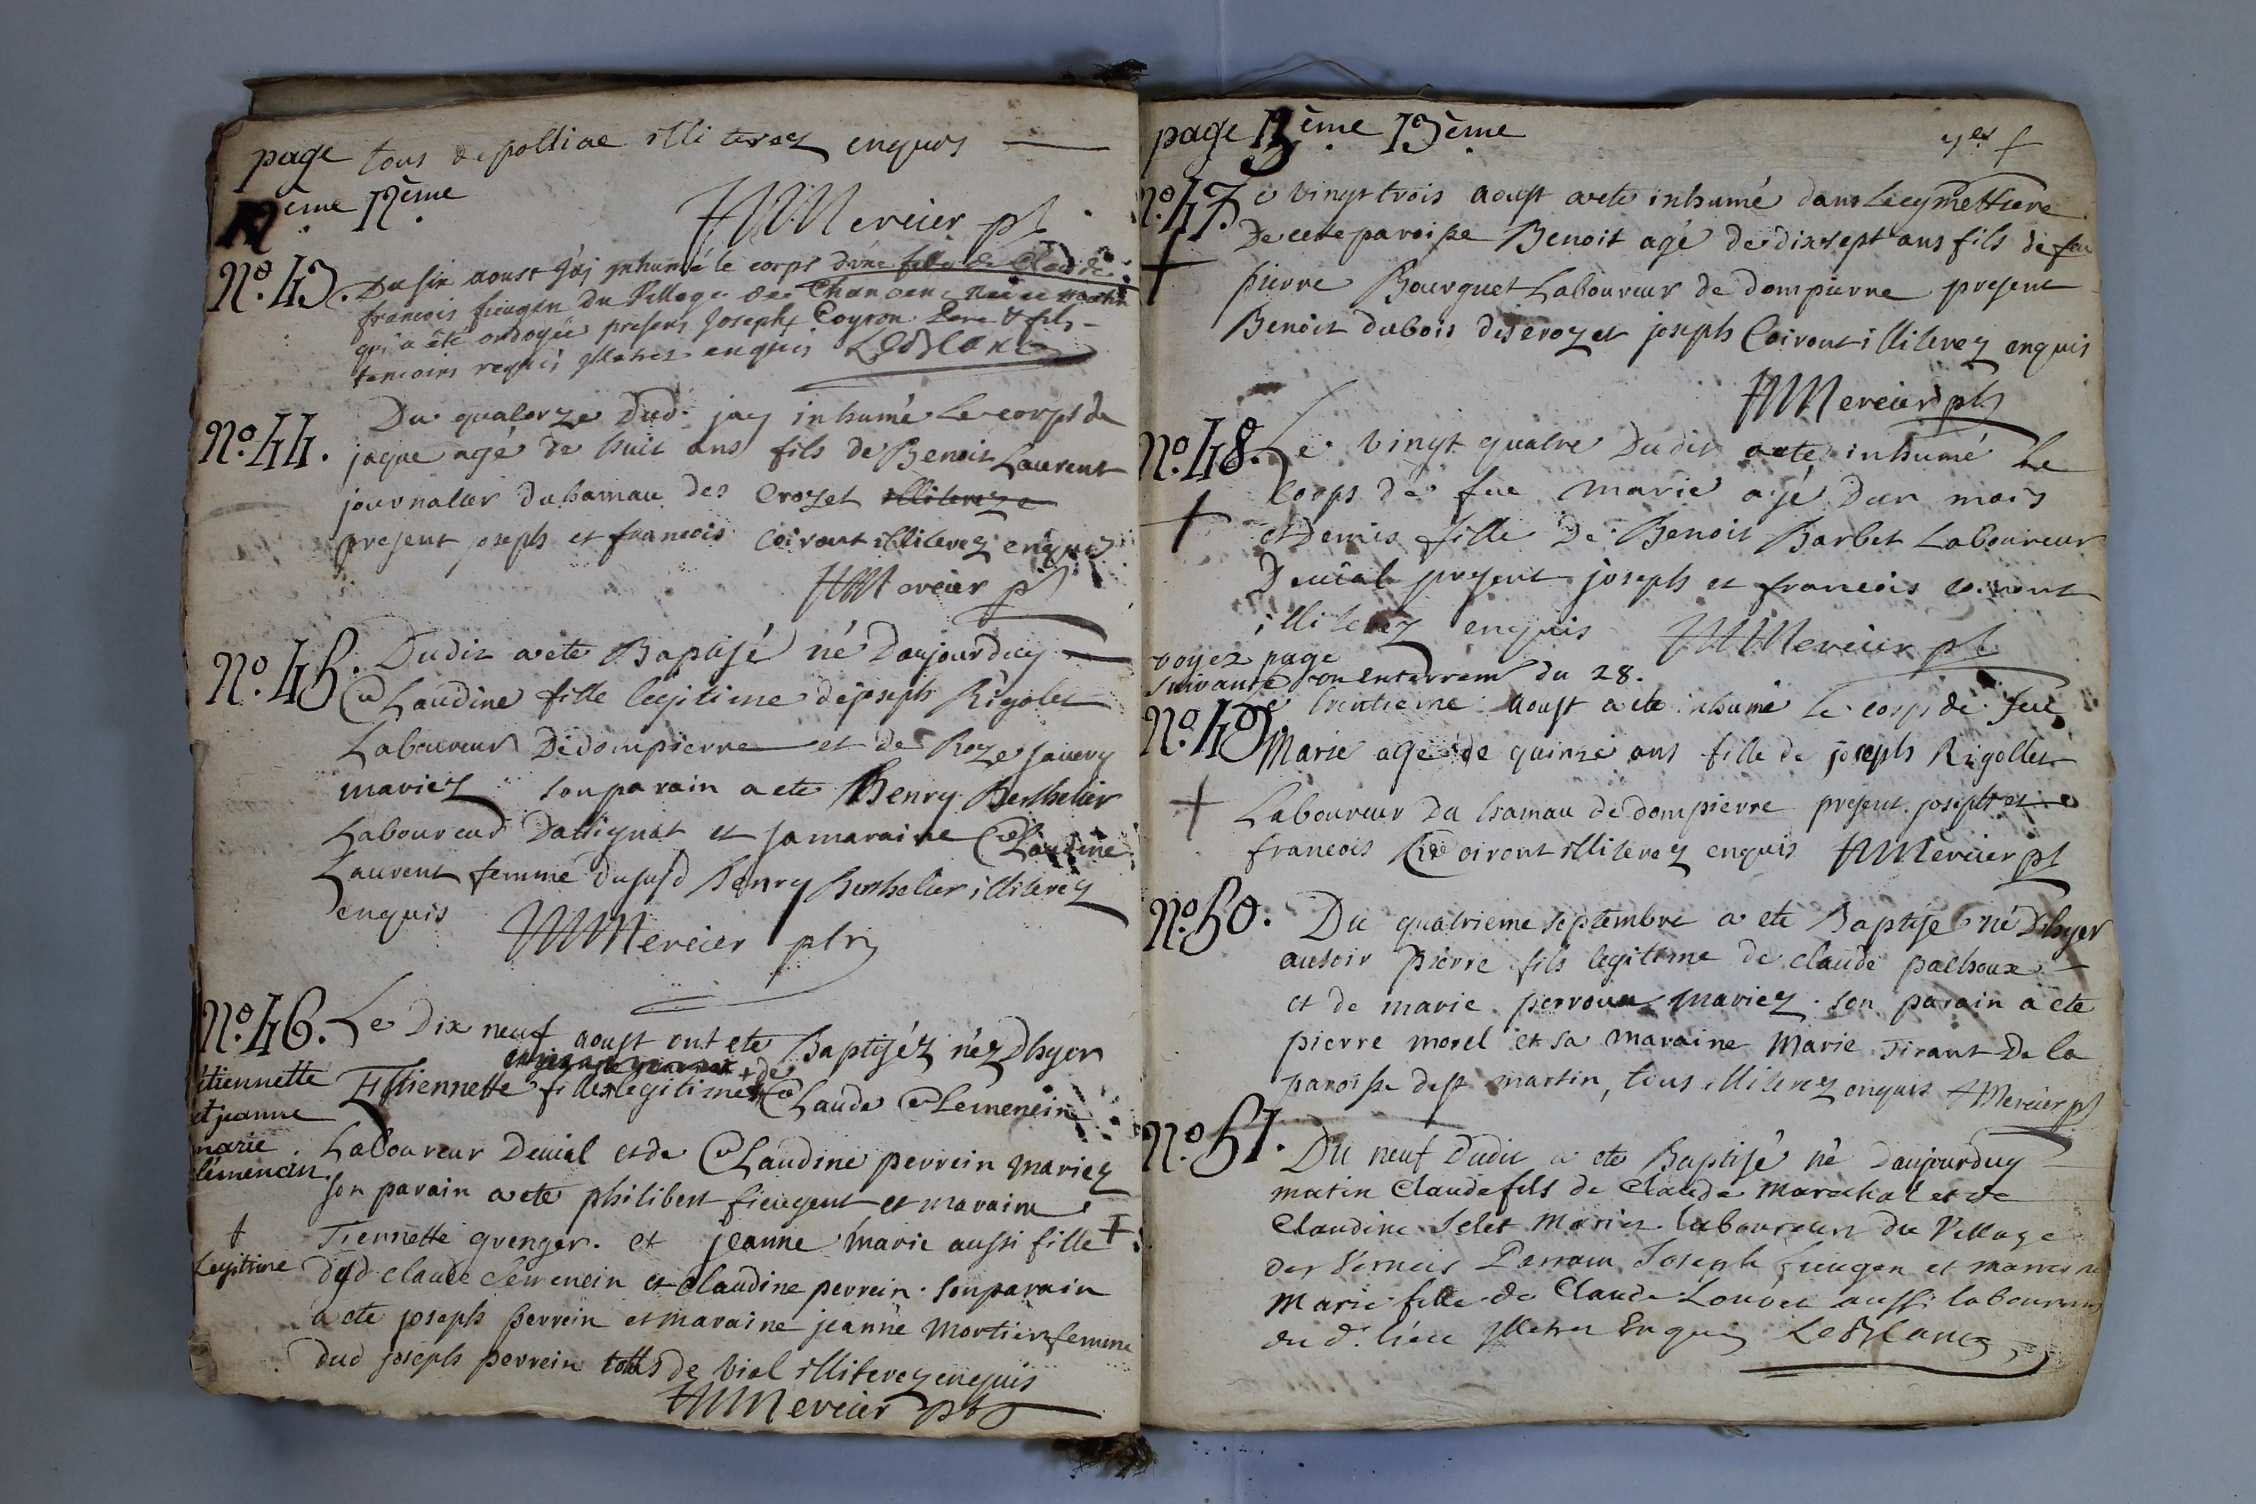 page tous de polliac illiterez enquis
12ème 12ème
HMMercier ptr
N.º 43. Du six aoust j'ay inhumé le corps d'une fille de Claude
francois fieugen du Village de
qui a été ondoyée presens Joseph Coyron pere & fils
temoins requis illetrés enquis LeBlanc
N.º 44. Du quatorze dud. jay inhumé Le corps de
jaque agé de huit ans fils de Benoit Laurent
journalier du hamau des Crozet illiterez
present joseph et francois Coiront illiterez enquis
HMMercier ptr
N.º 45. Dudit a ete Baptisé né Daujourduy
Claudine fille legitime de joseph Rigolet
Laboureur De dompierre et de Roze Javery
mariez son parain a ete Henry Berthelier
Laboureur Dattignat et sa maraine Claudine
Laurent femme du susd Henry Berthelier illiterez
enquis HMMercier ptr
N.º 46. Le Dix neuf aoust ont ete Baptisèz nèz Dhyer
étiennette Estiennette filles legitimes de Claude Clemencin
et jeanne
marie Laboureur Deviol et de Claudine perrein mariez
clémencin. son parain a ete philibert fieugent et maraine
+ Tiennette grenger. et jeanne marie aussi fille +
Legitime dud claude Clemencin et Claudine perrein. son parain
a ete joseph perrein et maraine jeanne Mortier femme
dud joseph perrein tous de viol illiterez enquis
HMMercier ptr
page 13ème 13ème
N.º 47. Le vingt trois aoust a ete inhumé dans Le cymettiere
+ De cette paroisse Benoit agé de dix sept ans fils de feu
pierre Bourguet Laboureur de dompierre present
Benoit dubois des crozet joseph Coiront illiterez enquis
HMMercier ptr
N.º 48. Le vingt quatre Dudit a ete inhumé Le
+ Corps de feue marie agé D'un mois
et demis fille De Benoit Barbet Laboureur
Deviol present joseph et francois coiront
illiterez enquis HMMercier ptr
voyez page
suivante un enterrem. du 28.
N.º 49. Le trentieme aoust a ete inhumé Le corps de feüe
Marie agé de quinze ans fille de joseph Rigollet
+ Laboureur du hamau de dompierre present joseph et
francois Coiront illiterez enquis HMMercier ptr
N.º 50. Du quatrieme septembre a ete Baptise né Dhyer
au soir pierre fils legitime de claude pachoux
et de marie perroux mariez. son parain a ete
pierre morel et sa maraine Marie Tirant De la
paroisse de st martin, tous illiterez enquis HMercier ptr
N.º 51. Du neuf dudit a ete Baptisé né Daujourduy
matin Claude fils de Claude Marechal et de
Claudine Selet Mariez laboureurs du Village
des Verneis Parrain Joseph fieugen et marraine
Marie fille de Claude Louvet aussi laboureur
du d. lieu illetrez Enquis LeBlanc